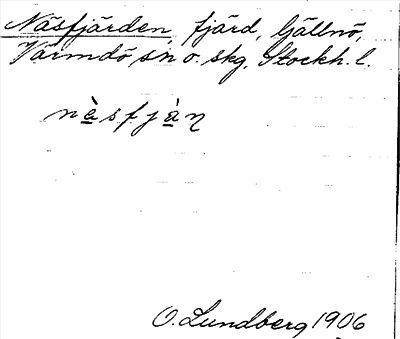 Näsfjärden, fjärd, Gällnö,
Värmdö sn o. skg. Stockh. l.
nä̀sfjä̀ꞃ
O. Lundberg 1906